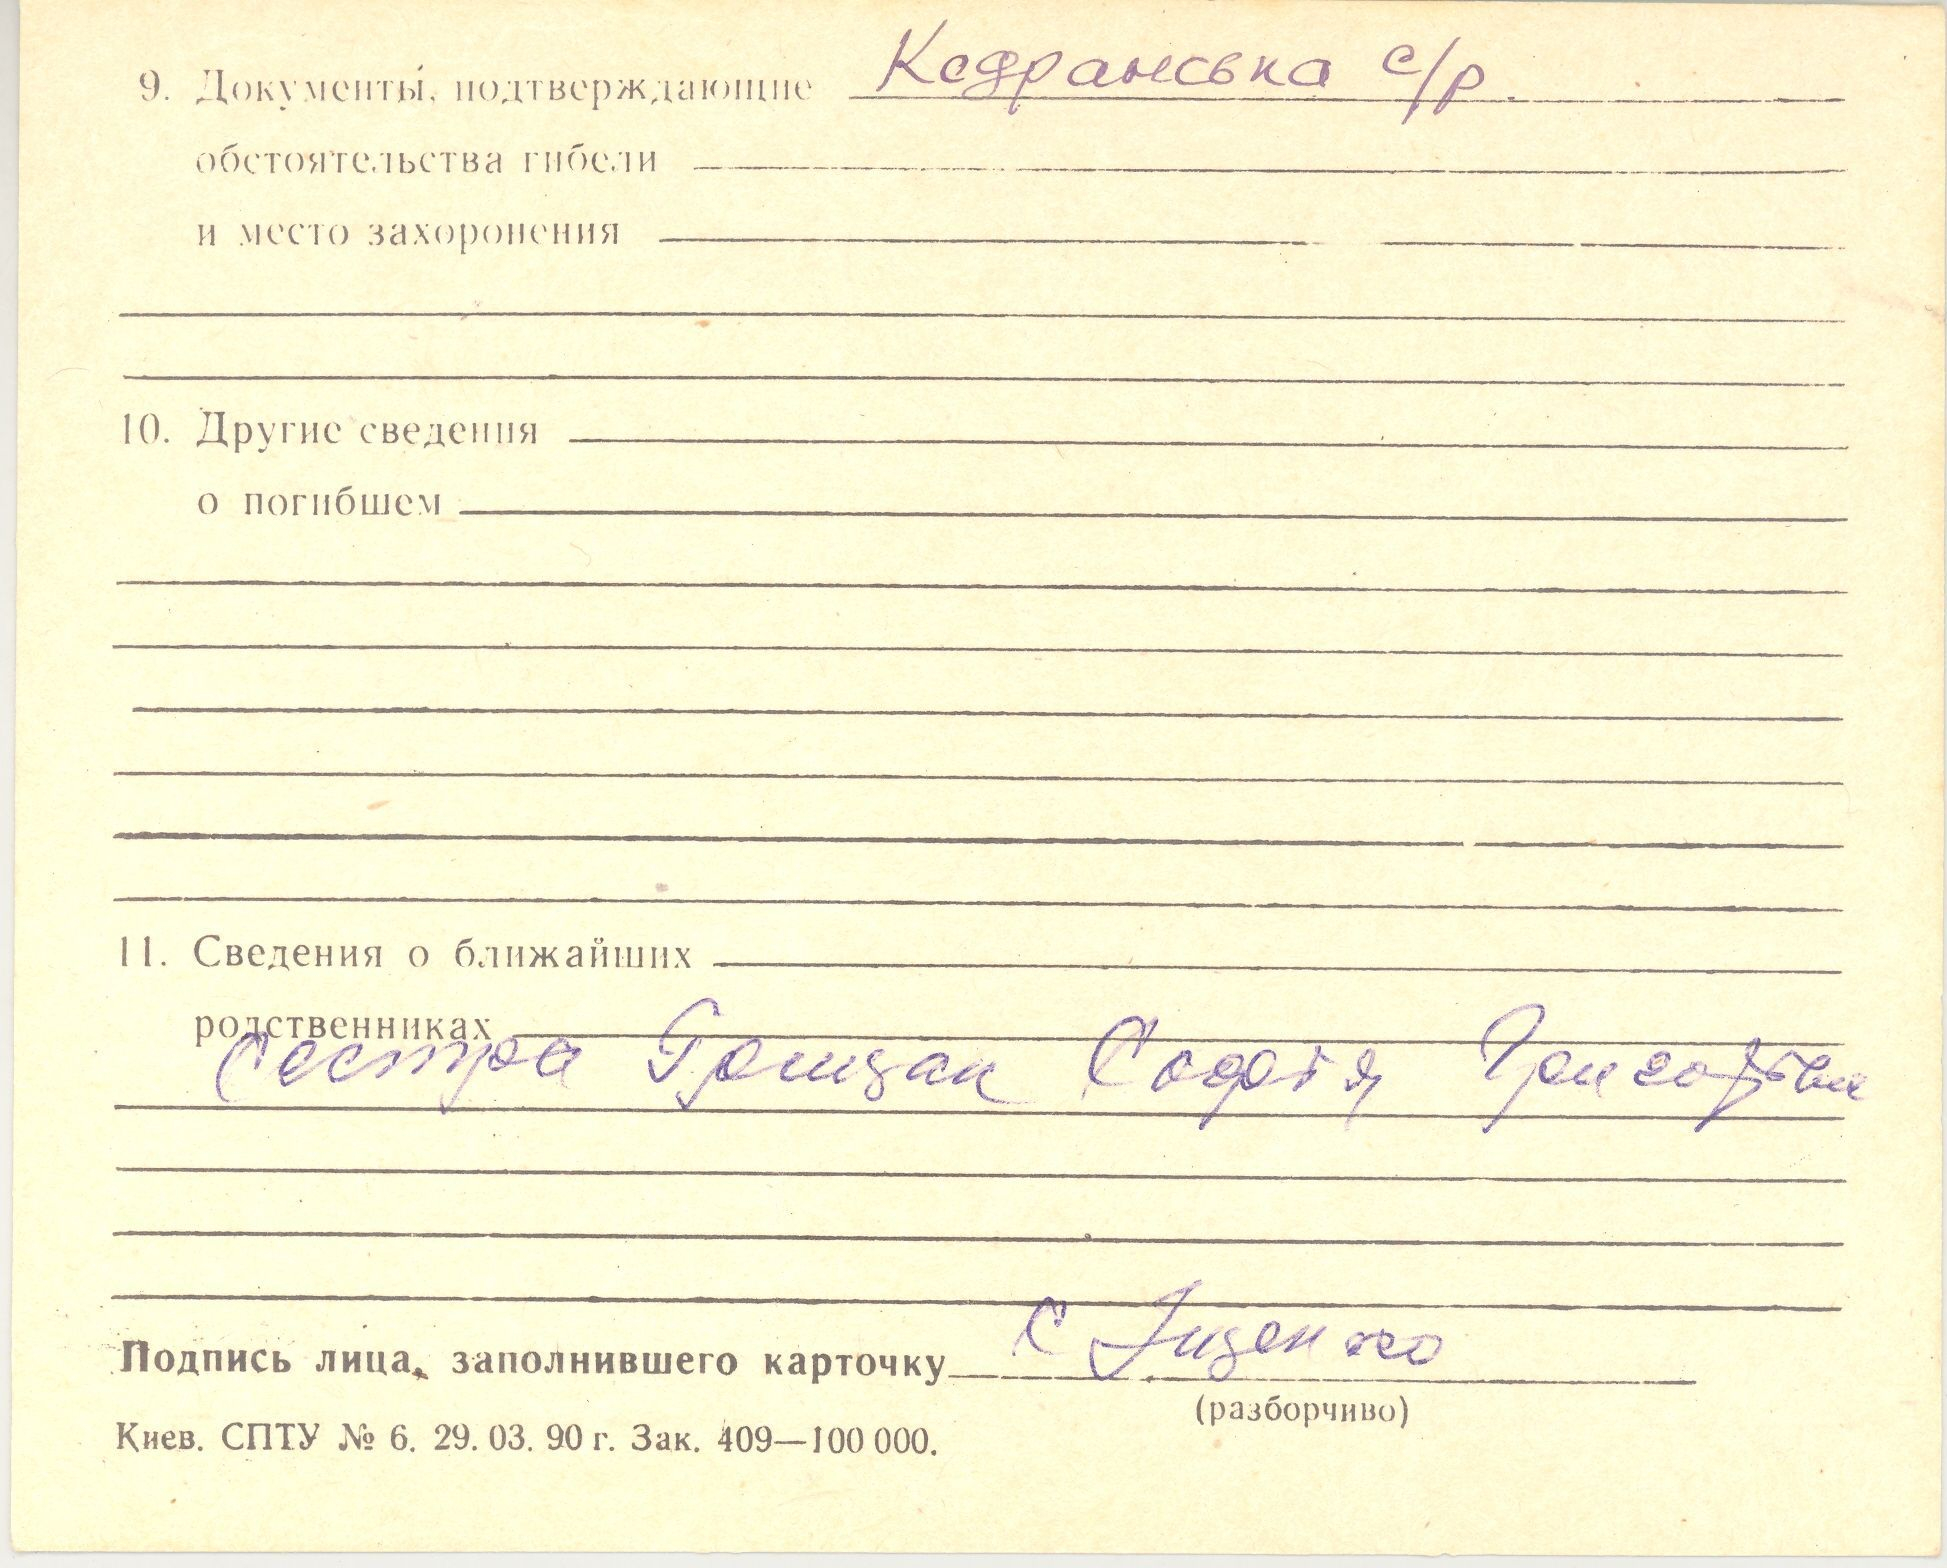 9. Документы, подтверждающие Кедранська с/р.
обстоятельства гибели
и место захоронения
10. Другие сведения
о погибшем
11. Сведения о ближайших
родственниках
Сестра Грицак Софія Григорівн
Подпись лица, заполнившего карточку С Іщенко
(разборчиво)
Киев. СПТУ № 6. 29. 03. 90 г. Зак. 409—100 000.